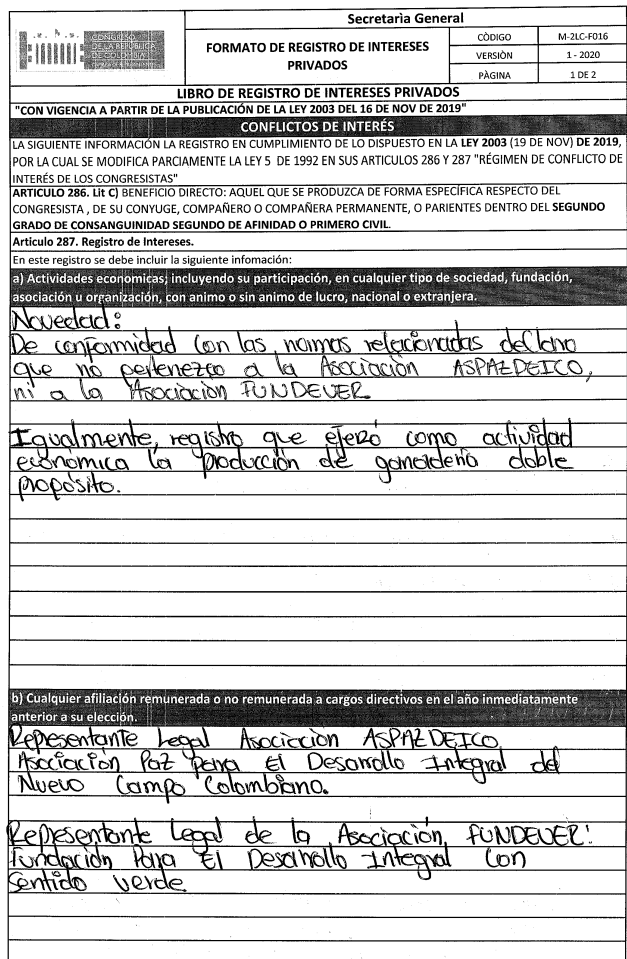 CONGRESO
DE LA REPÚBLICA
DE COLOMBIA
Secretarìa General
FORMATO DE REGISTRO DE INTERESES
PRIVADOS
CÒDIGO M-2LC-F016
VERSIÒN 1 - 2020
PÀGINA 1 DE 2
LIBRO DE REGISTRO DE INTERESES PRIVADOS
"CON VIGENCIA A PARTIR DE LA PUBLICACIÓN DE LA LEY 2003 DEL 16 DE NOV DE 2019"
CONFLICTOS DE INTERÉS
LA SIGUIENTE INFORMACIÓN LA REGISTRO EN CUMPLIMIENTO DE LO DISPUESTO EN LA LEY 2003 (19 DE NOV) DE 2019,
POR LA CUAL SE MODIFICA PARCIAMENTE LA LEY 5 DE 1992 EN SUS ARTICULOS 286 Y 287 "RÉGIMEN DE CONFLICTO DE
INTERÉS DE LOS CONGRESISTAS"
ARTICULO 286. Lit C) BENEFICIO DIRECTO: AQUEL QUE SE PRODUZCA DE FORMA ESPECÍFICA RESPECTO DEL
CONGRESISTA , DE SU CONYUGE, COMPAÑERO O COMPAÑERA PERMANENTE, O PARIENTES DENTRO DEL SEGUNDO
GRADO DE CONSANGUINIDAD SEGUNDO DE AFINIDAD O PRIMERO CIVIL.
Articulo 287. Registro de Intereses.
En este registro se debe incluir la siguiente infomación:
a) Actividades economicas; incluyendo su participación, en cualquier tipo de sociedad, fundación,
asociación u organización, con animo o sin animo de lucro, nacional o extranjera.
Novedad:
De conformidad con las normas relacionadas declaro
que no pertenezco a la Asociación ASPAZDEICO,
ni a la Asociación FUNDEVER
Igualmente, registro que ejerzo como actividad
económica la producción de ganadería doble
propósito.
b) Cualquier afiliación remunerada o no remunerada a cargos directivos en el año inmediatamente
anterior a su elección.
Representante Legal Asociación ASPAZDEICO,
Asociación Paz Para El Desarrollo Integral del
Nuevo Campo Colombiano.
Representante Legal de la Asociación, FUNDEVER:
Fundación Para El Desarrollo Integral Con
Sentido verde